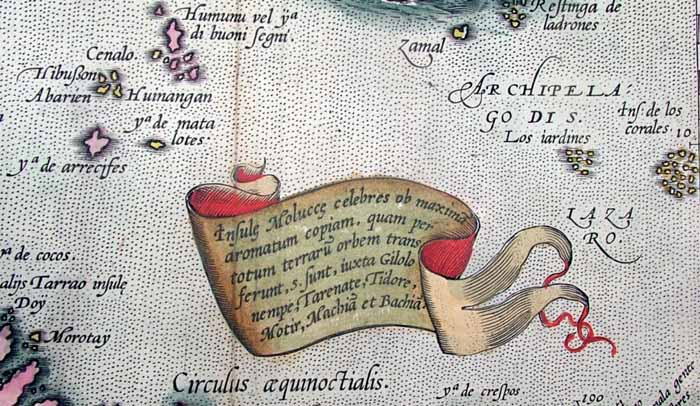 Humunu vel yᵃ
di buoni segni.
Restinga de
ladrones
Zamal
Cenalo
Hibusson
Abarien
Huinangan
yᵃ de mata
lotes.
yᵃ de arrecifes
ARCHIPELA
GO DI S.
LAZA
RO.
Los iardines
Inſ. de los
corales.
10
Inſulę Moluccę celebres ob maximā
aromatum copiam, quam per
totum terrarū orbem trans
ferunt, 5. ſunt, iuxta Gilolo
nempe, Tarenate, Tidore,
Motir, Machiā et Bachiā.
yᵃ de cocos.
alijs Tarrao inſule
Doy
Morotay
Circulus æquinoctialis.
yᵃ de creſpos
190
gente